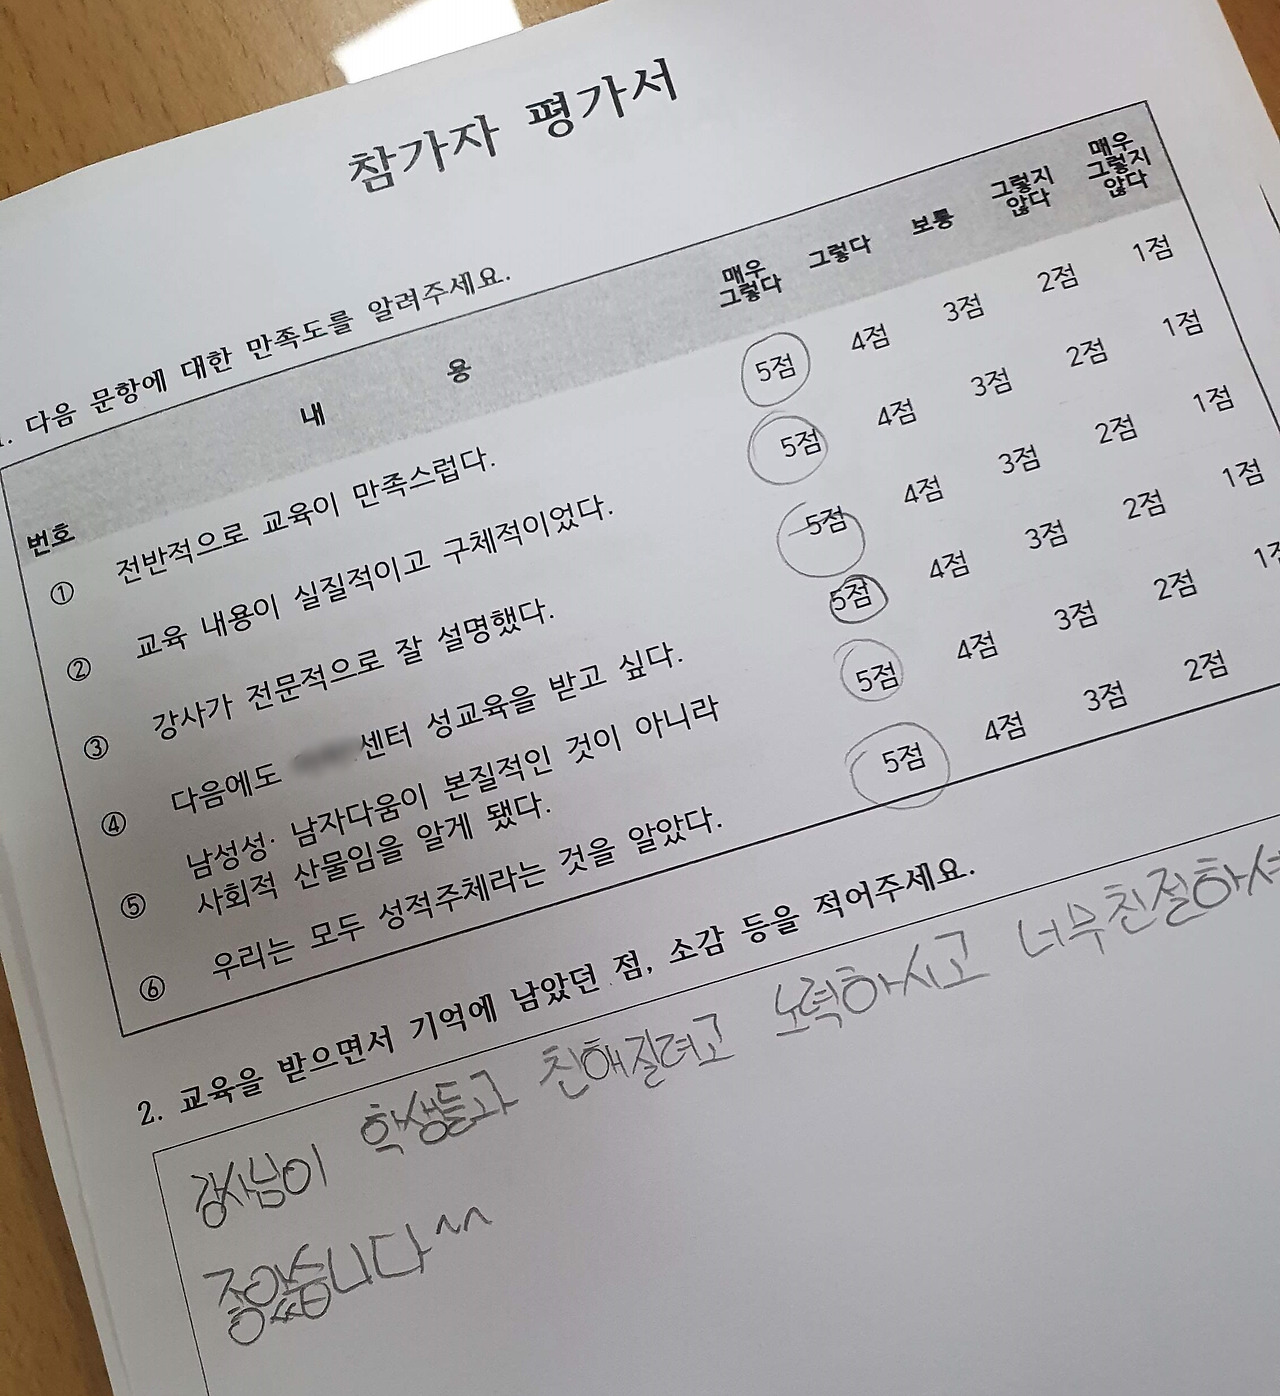 참가자 평가서
1. 다음 문항에 대한 만족도를 알려주세요.
번호 내 용 매우 그렇다 그렇다 보통 그렇지 않다 매우 그렇지 않다
① 전반적으로 교육이 만족스럽다. 5점 4점 3점 2점 1점
② 교육 내용이 실질적이고 구체적이었다. 5점 4점 3점 2점 1점
③ 강사가 전문적으로 잘 설명했다. 5점 4점 3점 2점 1점
④ 다음에도 센터 성교육을 받고 싶다. 5점 4점 3점 2점 1점
⑤ 남성성· 남자다움이 본질적인 것이 아니라
사회적 산물임을 알게 됐다. 5점 4점 3점 2점 1점
⑥ 우리는 모두 성적주체라는 것을 알았다. 5점 4점 3점 2점
2. 교육을 받으면서 기억에 남았던 점, 소감 등을 적어주세요.
강사님이 학생들과 친해질려고 노력하시고 너무친절하셔
좋았습니다^^